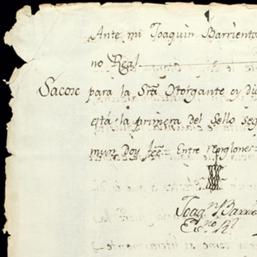 Ante mi Joaquin Barriento
no Real
Sacose para la Sra Otorgante oy di
está la primera del Sello Seg
mun doy fee= Entre renglones
Joaqn Barrie
Esno Rl